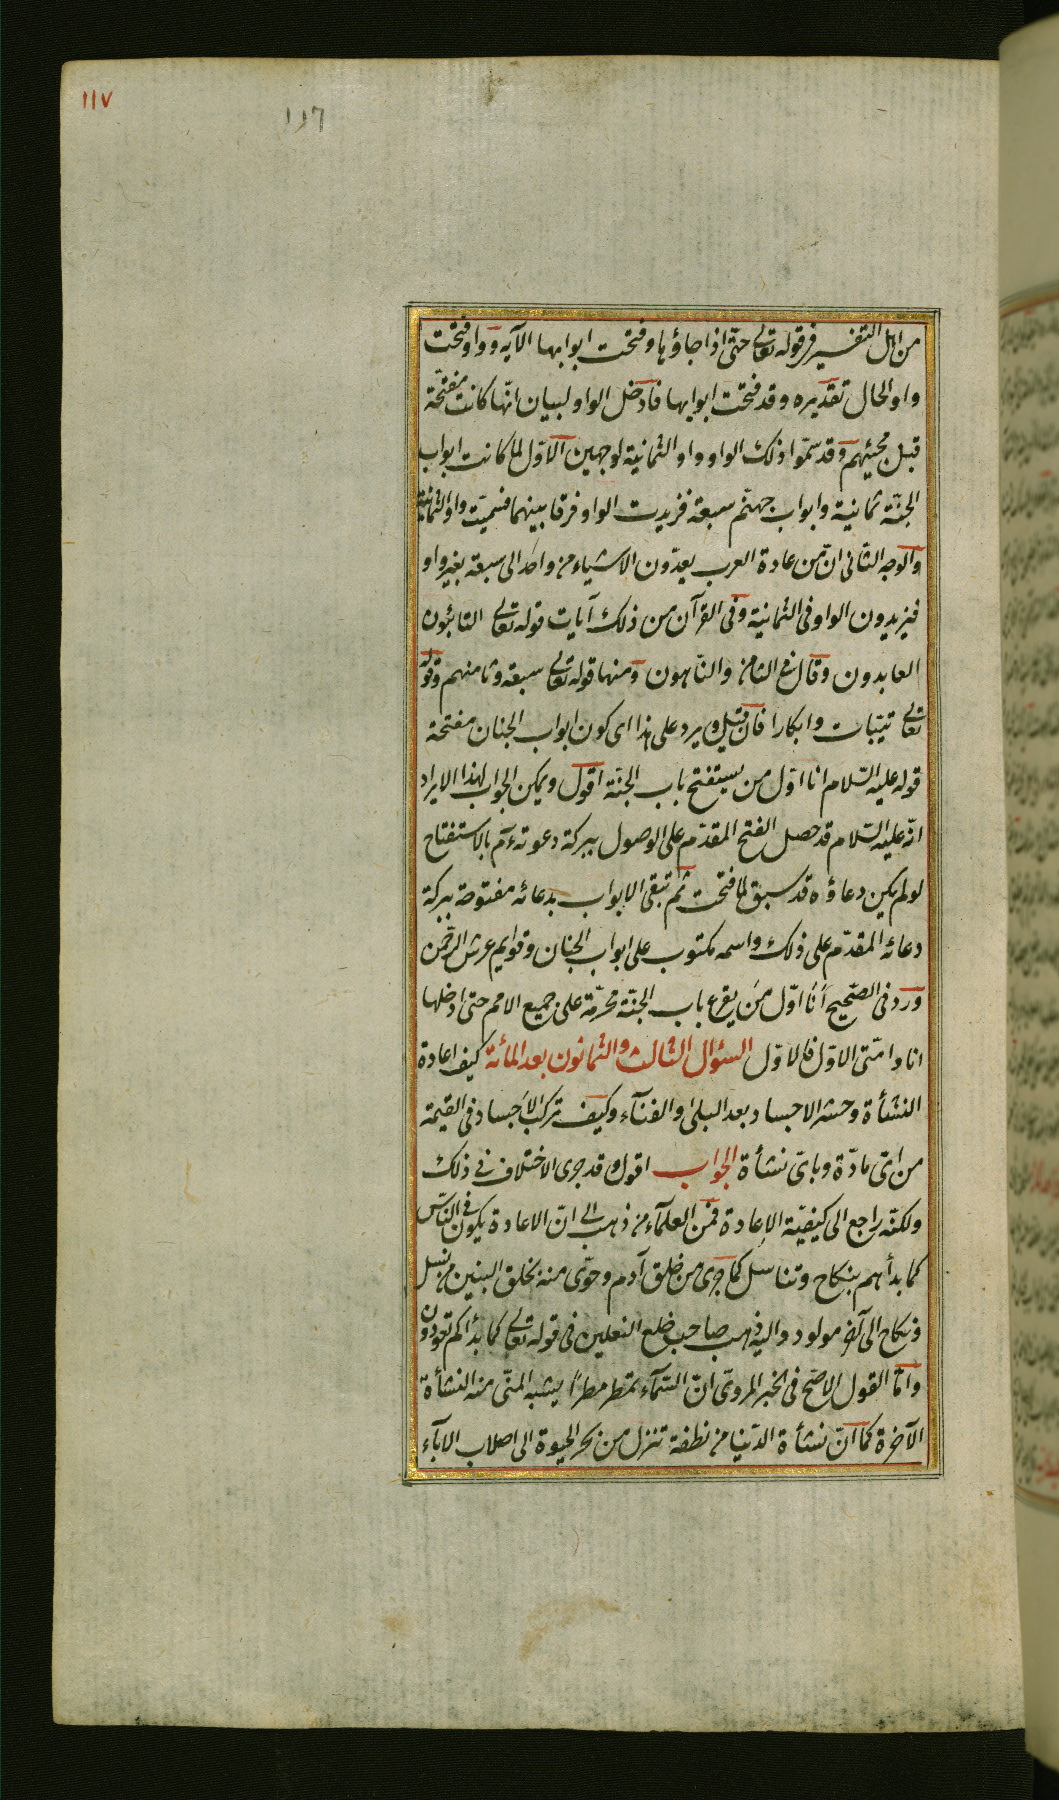 ١١٧
١١٦
من اهل التفسير فى قوله تعالى حتّى اذا جاؤها وفتحت ابوابها الآية وواو فتحت
واو الحال تقديره وقد فتحت ابوابها فادخل الواو لبيان انّها كانت مفتّحة
قبل مجيئهم وقد سمّوا ذلك الواو واو الثمانية لوجهين الاوّل لما كانت ابواب
الجنّة ثمانية وابواب جهنّم سبعة فزيدت الواو فرقا بينهما فسميت واو الثمانية
والوجه الثانى انّ من عادة العرب يعدّون الاشياء من واحد الى سبعة بغير واو
فيزيدون الواو فى الثمانية وفى القرآن من ذلك آيات قوله تعالى التائبون
العابدون وقال فى الثامن والنّاهون ومنها قوله تعالى سبعة وثامنهم وقوله
تعالى ثيّبات وابكارا فان قيل يرد على هذا اى كون ابواب الجنان مفتحة
قوله عليه السّلام انا اوّل من يستفتح باب الجنّة اقول ويمكن الجواب لهذا الايراد
انّه عليه السّلام قد حصل الفتح المقدّم على الوصول ببركة دعوته ثم بالاستفتاح
لو لم يكن دعاؤه قد سبق لما فتحت ثم تبقى الابواب بدعائه مفتوحة ببركة
دعائه المقدّم على ذلك واسمه مكتوب على ابواب الجنان وقوايم عرش الرّحمن
ورد فى الصّحيح أنا اوّل من يقرع باب الجنّة محرّمة على جميع الامم حتى ادخلها
انا وامّتى الاوّل فالاوّل السؤال الثالث والثمانون بعد المائة كيف اعادة
النشأة وحشر الاجساد بعد البلى والفنآء وكيف تركب الاجساد فى القيمة
من اىّ مادّة وباىّ نشأة الجواب اقول وقد جرى الاختلاف فى ذلك
ولكنّه راجع الى كيفيّة الاعادة فمن العلمآء من ذهب الى انّ الاعادة يكون فى النّاس
كما بدأهم بنكاح وتناسل كما جرى من خلق آدم وحوّى منه بخلق البنين من نسل
ونكاح الى آخر مولود واليه ذهب صاحب خلع النعلين فى قوله تعالى كما بدأكم تعودون
وامّا القول الاصحّ فى الخبر المروىّ انّ السّمآء تمطر مطراً يشبه المنّى منه النشأة
الآخرة كما انّ نشأة الدّنيا من نطفة تنزل من بحر الحيوة الى اصلاب الآبآء